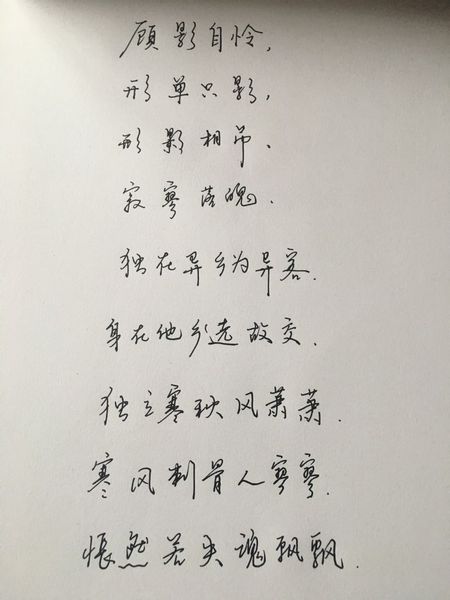 顾影自怜,
形单只影,
形影相吊、
寂寥落魄.
独在异乡为异客.
身在他乡遥故交.
独立寒秋风萧萧.
寒风刺骨人寥寥.
怅然若失魂飘飘.